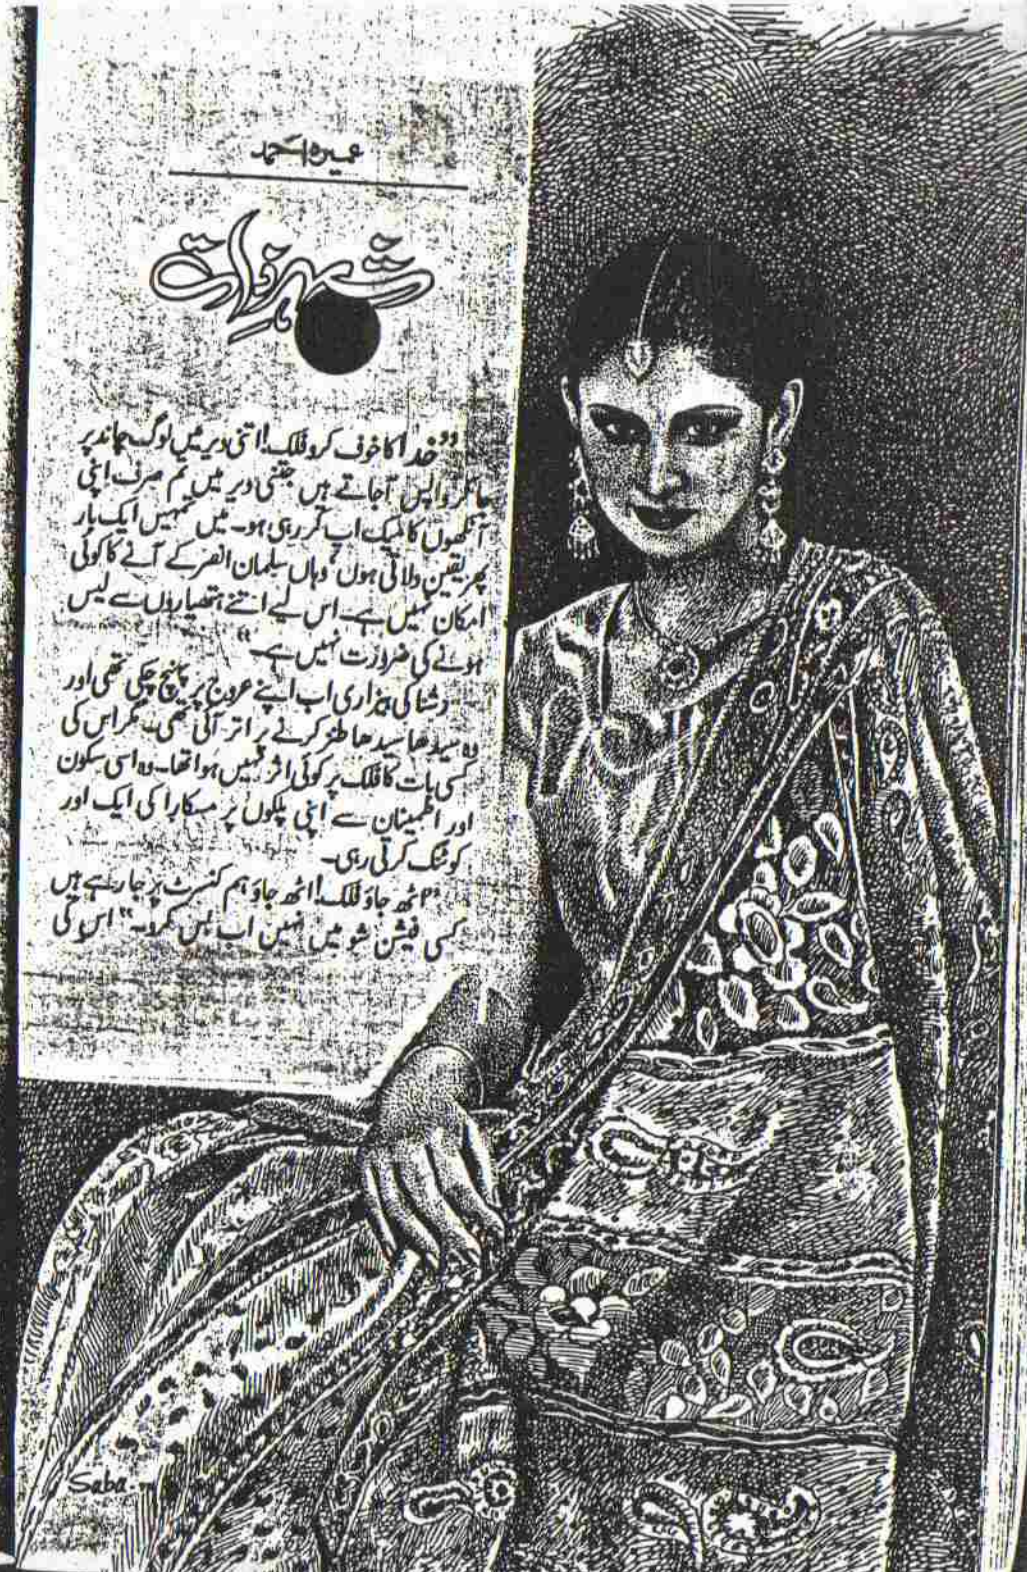 عمیرہ احمد
شہرِ ذات
”خدا کا خوف کرو فلک! اتنی دیر میں لوگ چاند پر
جا کر واپس آجاتے ہیں جتنی دیر میں تم صرف اپنی
آنکھوں کا میک اپ کر رہی ہو۔ میں تمہیں ایک بار
پھر یقین دلاتی ہوں‘ وہاں سلمان انصر کے آنے کا کوئی
امکان نہیں ہے۔ اس لیے اتنے ہتھیاروں سے لیس
ہونے کی ضرورت نہیں ہے۔“
رشنا کی بیزاری اب اپنے عروج پر پہنچ چکی تھی اور
وہ سیدھا سیدھا طنز کرنے پر اتر آئی تھی۔ مگر اس کی
کسی بات کا فلک پر کوئی اثر نہیں ہوا تھا۔ وہ اسی سکون
اور اطمینان سے اپنی پلکوں پر مسکارا کی ایک اور
کوٹنگ کرتی رہی۔
”اٹھ جاؤ فلک! اٹھ جاؤ ہم کنسرٹ پر جا رہے ہیں
کسی فیشن شو میں نہیں اب بس کرو۔“ اس کی
Saba